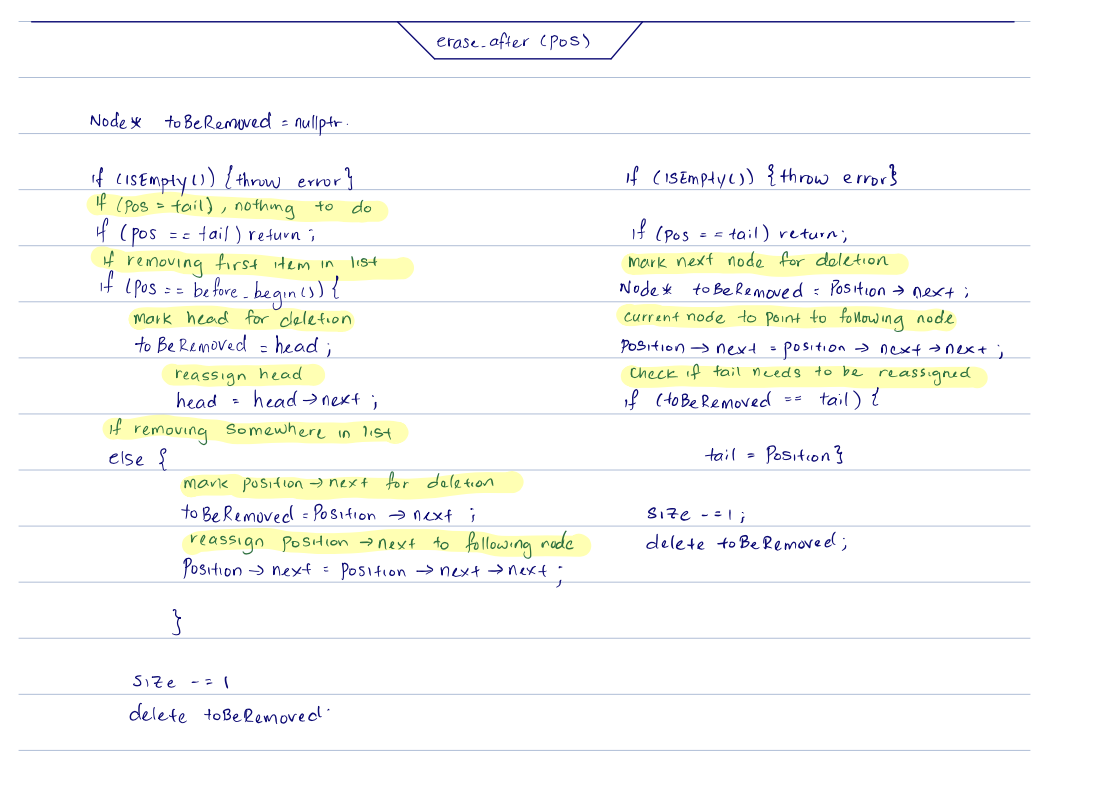 erase_after (POS)
Node* toBeRemoved = nullptr.
if (isEmpty()) {throw error}
if (pos = tail), nothing to do
if (pos == tail) return ;
if removing first item in list
if (pos == before_begin()) {
mark head for deletion
toBeRemoved = head ;
reassign head
head = head → next ;
if removing somewhere in list
else {
mark position → next for deletion
toBeRemoved = Position → next ;
reassign position → next to following node
Position → next = Position → next → next ;
}
size -= 1
delete toBeRemoved.
if (isEmpty()) {throw error}
if (pos == tail) return;
mark next node for deletion
Node* toBeRemoved = Position → next ;
current node to point to following node
Position → next = position → next → next ;
check if tail needs to be reassigned
if (toBeRemoved == tail) {
tail = Position}
size -= 1 ;
delete toBeRemoved ;